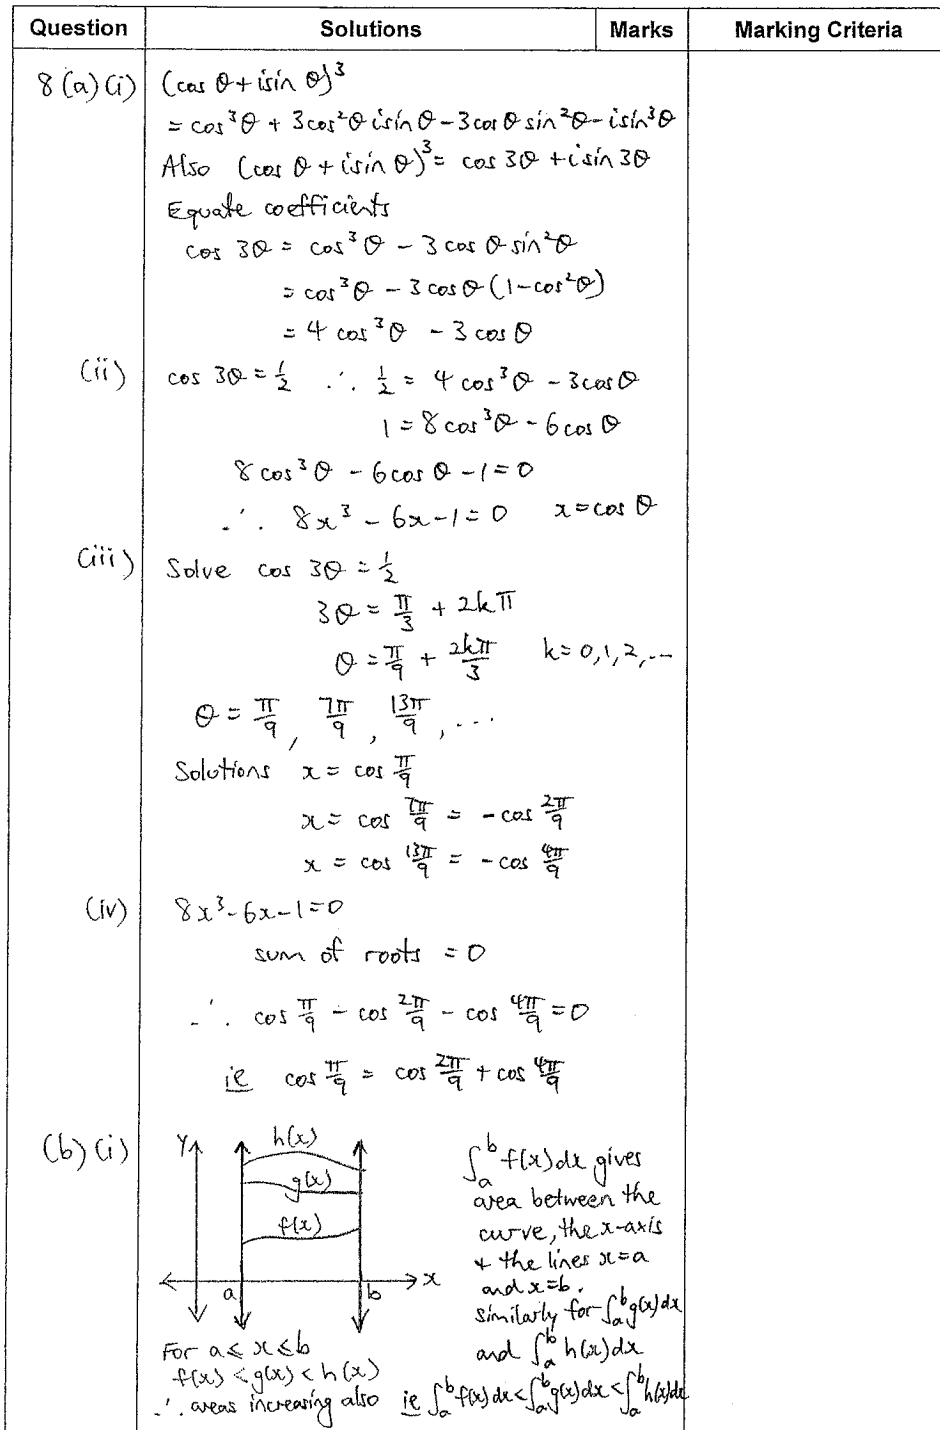 Question Solutions Marks Marking Criteria
8 (a) (i) (cos θ + isin θ)³
= cos³θ + 3cos²θ isin θ - 3cos θ sin²θ - isin³θ
Also (cos θ + isin θ)³ = cos 3θ + isin 3θ
Equate coefficients
cos 3θ = cos³θ - 3 cos θ sin²θ
= cos³θ - 3 cos θ (1-cos²θ)
= 4 cos³θ - 3 cos θ
(ii) cos 3θ = 1/2 ∴ 1/2 = 4 cos³θ - 3cos θ
1 = 8cos³θ - 6cos θ
8cos³θ - 6cos θ - 1 = 0
∴ 8x³ - 6x - 1 = 0 x = cos θ
(iii) Solve cos 3θ = 1/2
3θ = π/3 + 2kπ
θ = π/9 + 2kπ/3 k = 0, 1, 2, ...
θ = π/9, 7π/9, 13π/9, ...
Solutions x = cos π/9
x = cos 7π/9 = -cos 2π/9
x = cos 13π/9 = -cos 4π/9
(iv) 8x³ - 6x - 1 = 0
sum of roots = 0
∴ cos π/9 - cos 2π/9 - cos 4π/9 = 0
ie cos π/9 = cos 2π/9 + cos 4π/9
(b) (i) y h(x)
g(x)
f(x)
a b x
For a ≤ x ≤ b
f(x) < g(x) < h(x)
∴ areas increasing also ie ∫ₐᵇ f(x) dx < ∫ₐᵇ g(x) dx < ∫ₐᵇ h(x) dx
∫ₐᵇ f(x) dx gives
area between the
curve, the x-axis
+ the lines x = a
and x = b.
Similarly for ∫ₐᵇ g(x) dx
and ∫ₐᵇ h(x) dx